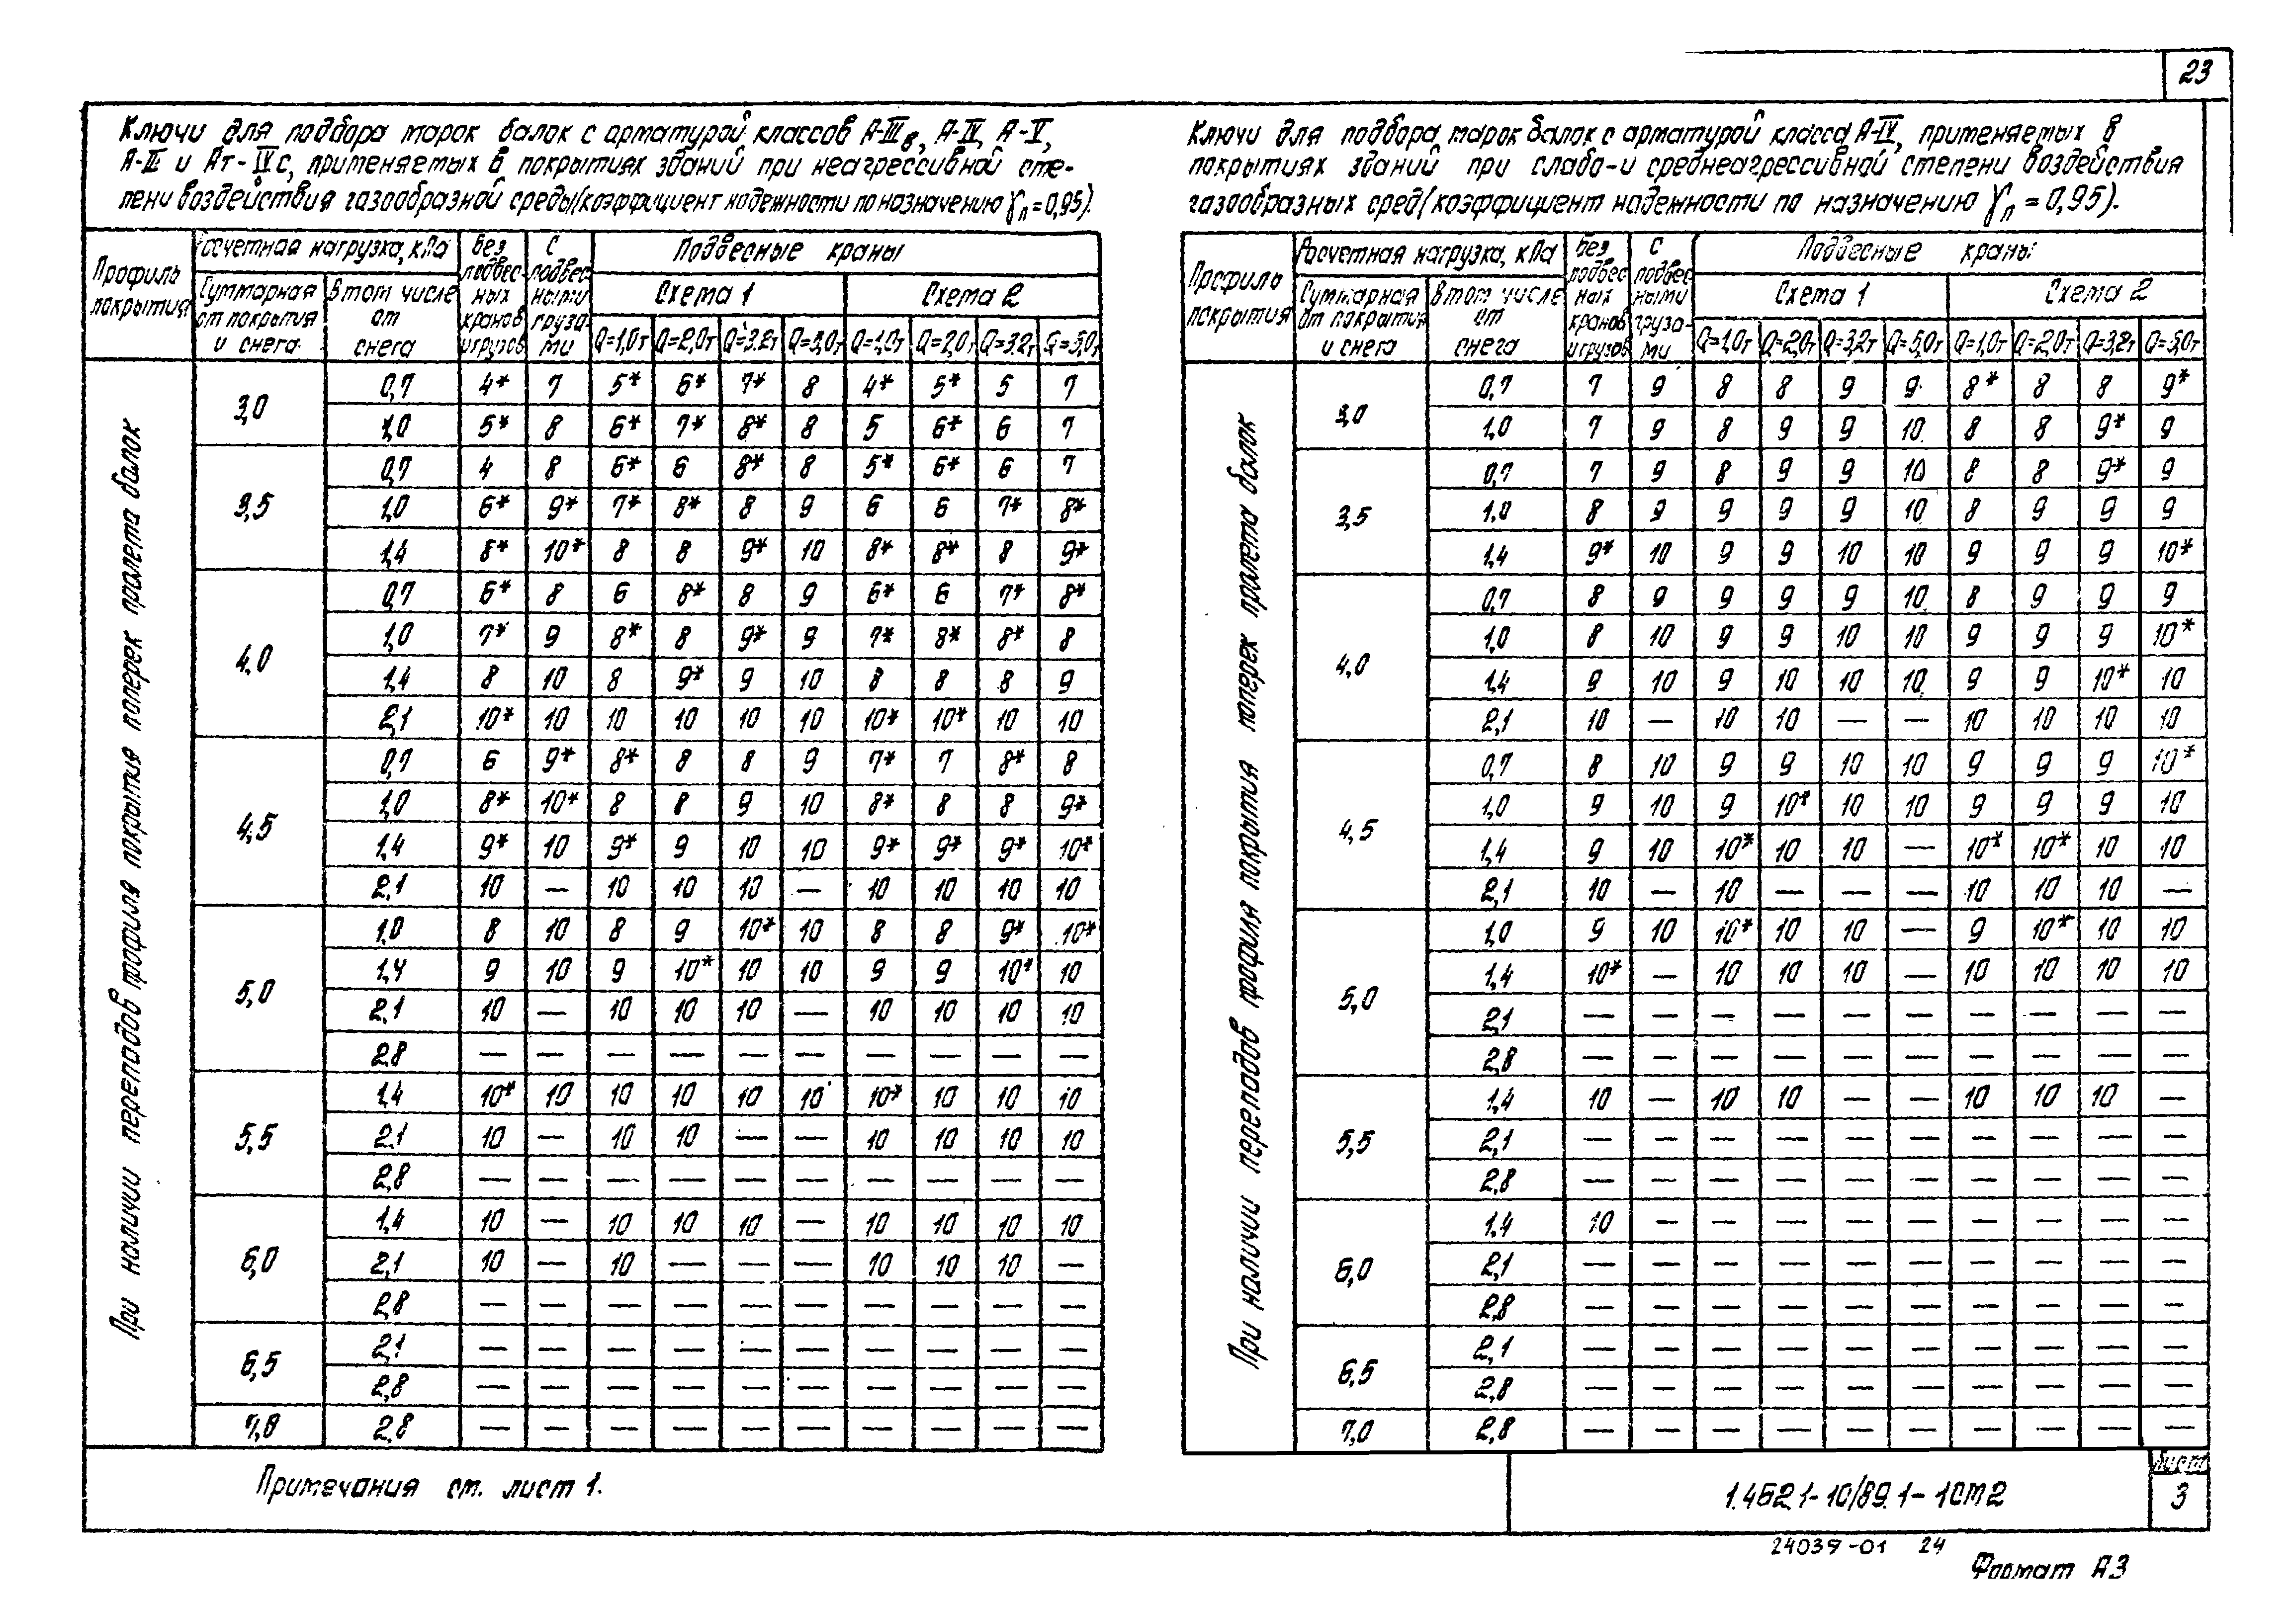 23
Ключи для подбора марок балок с арматурой классов А-IIIв, А-IV, А-V,
А-II и Ат-IVс, применяемых в покрытиях зданий при неагрессивной сте-
пени воздействия газообразной среды (коэффициент надежности по назначению γn = 0,95).
Профиль покрытия
Расчетная нагрузка, кПа
Суммарная от покрытия и снега
В том числе от снега
Без подвесных кранов и грузов
С подвесными грузами
Подвесные краны
Схема 1
Схема 2
Q=1,0т Q=2,0т Q=3,2т Q=5,0т Q=1,0т Q=2,0т Q=3,2т Q=5,0т
При наличии перепадов профиля покрытия поперек пролета балок
3,0
0,7 4* 7 5* 6* 7* 8 4* 5* 5 7
1,0 5* 8 6* 7* 8* 8 5 6* 6 7
3,5
0,7 4 8 6* 6 8* 8 5* 6* 6 7
1,0 6* 9* 7* 8* 8 9 6 6 7* 8*
1,4 8* 10* 8 8 9* 10 8* 8* 8 9*
4,0
0,7 6* 8 6 8* 8 9 6* 6 7* 8*
1,0 7* 9 8* 8 9* 9 7* 8* 8* 8
1,4 8 10 8 9* 9 10 8 8 8 9
2,1 10* 10 10 10 10 10 10* 10* 10 10
4,5
0,7 6 9* 8* 8 8 9 7* 7 8* 8
1,0 8* 10* 8 8 9 10 8* 8 8 9*
1,4 9* 10 9* 9 10 10 9* 9* 9* 10*
2,1 10 — 10 10 10 — 10 10 10 10
5,0
1,0 8 10 8 9 10* 10 8 8 9* 10*
1,4 9 10 9 10* 10 10 9 9 10* 10
2,1 10 — 10 10 10 — 10 10 10 10
2,8 — — — — — — — — — —
5,5
1,4 10* 10 10 10 10 10 10* 10 10 10
2,1 10 — 10 10 — — 10 10 10 10
2,8 — — — — — — — — — —
6,0
1,4 10 — 10 10 10 — 10 10 10 10
2,1 10 — 10 — — — 10 10 10 —
2,8 — — — — — — — — — —
6,5
2,1 — — — — — — — — — —
2,8 — — — — — — — — — —
7,0
2,8 — — — — — — — — — —
Ключи для подбора марок балок с арматурой класса А-IV, применяемых в
покрытиях зданий при слабо- и среднеагрессивной степени воздействия
газообразных сред (коэффициент надежности по назначению γn = 0,95).
Профиль покрытия
Расчетная нагрузка, кПа
Суммарная от покрытия и снега
В том числе от снега
Без подвесных кранов и грузов
С подвесными грузами
Подвесные краны
Схема 1
Схема 2
Q=1,0т Q=2,0т Q=3,2т Q=5,0т Q=1,0т Q=2,0т Q=3,2т Q=5,0т
При наличии перепадов профиля покрытия поперек пролета балок
3,0
0,7 7 9 8 8 9 9 8* 8 8 9*
1,0 7 9 8 9 9 10 8 8 9* 9
3,5
0,7 7 9 8 9 9 10 8 8 9* 9
1,0 8 9 9 9 9 10 8 9 9 9
1,4 9* 10 9 9 10 10 9 9 9 10*
4,0
0,7 8 9 9 9 9 10 8 9 9 9
1,0 8 10 9 9 10 10 9 9 9 10*
1,4 9 10 9 10 10 10 9 9 10* 10
2,1 10 — 10 10 — — 10 10 10 10
4,5
0,7 8 10 9 9 10 10 9 9 9 10*
1,0 9 10 9 10* 10 10 9 9 9 10
1,4 9 10 10* 10 10 — 10* 10* 10 10
2,1 10 — 10 — — — 10 10 10 —
5,0
1,0 9 10 10* 10 10 — 9 10* 10 10
1,4 10* — 10 10 10 — 10 10 10 10
2,1 — — — — — — — — — —
2,8 — — — — — — — — — —
5,5
1,4 10 — 10 10 — — 10 10 10 —
2,1 — — — — — — — — — —
2,8 — — — — — — — — — —
6,0
1,4 10 — — — — — — — — —
2,1 — — — — — — — — — —
2,8 — — — — — — — — — —
6,5
2,1 — — — — — — — — — —
2,8 — — — — — — — — — —
7,0
2,8 — — — — — — — — — —
Примечания см. лист 1.
1.462.1-10/89.1-1СМ2
Лист
3
24039-01 24
Формат А3